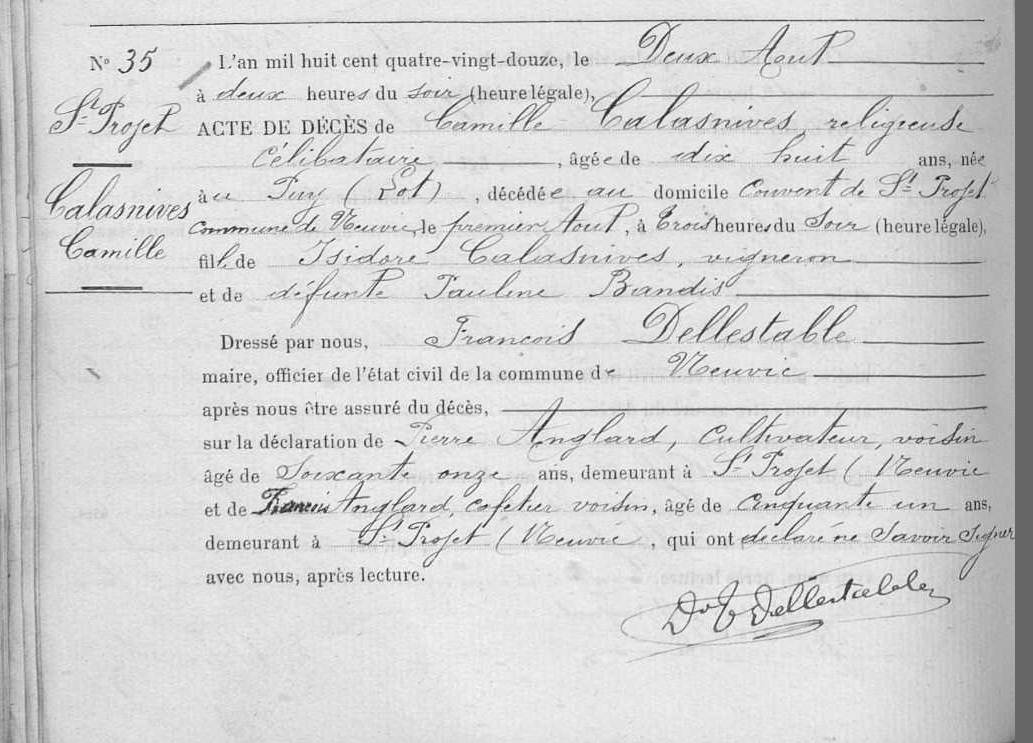 N° 35
St Projet
Calasnives
Camille
L'an mil huit cent quatre-vingt-douze, le Deux Aout
à deux heures du soir (heure légale),
ACTE DE DÉCÈS de Camille Calasnives, religieuse
Célibataire, âgée de dix huit ans, née
à au Puy (Lot), décédée au domicile Couvent de St Projet
Commune de Neuvic, le premier Aout, à Trois heures du Soir (heure légale),
fille de Isidore Calasnives, vigneron
et de défunte Pauline Bandis
Dressé par nous, Francois Dellestable
maire, officier de l'état civil de la commune de Neuvic
après nous être assuré du décès,
sur la déclaration de Pierre Anglard, cultivateur, voisin
âgé de Soixante onze ans, demeurant à St Projet (Neuvic
et de Francois Anglard, cafetier voisin, âgé de Cinquante un ans,
demeurant à St Projet (Neuvic, qui ont déclaré ne Savoir Signer
avec nous, après lecture.
Dr F Dellestable